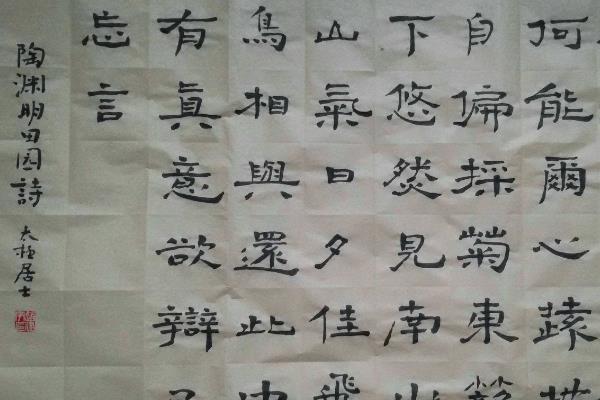 何能爾心
自偏採菊東籬
下悠然見南山
山氣日夕佳飛
鳥相與還此中
有眞意欲辯已
忘言
陶渊明田园詩
太极居士